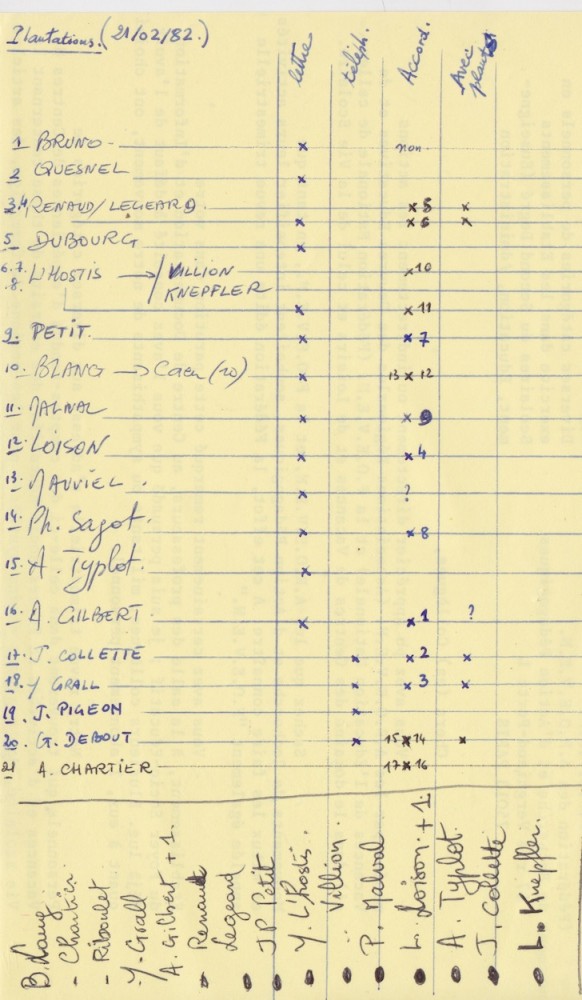 Plantations. (21/02/82.)
lettre téléph. Accord. Avec plants
1 BRUNO x non
2 QUESNEL x
3.4 RENAUD/LEGEARD x 5 x
x x 6 x
5 DUBOURG x
6.7.8. L'HOSTIS → / VILLION x 10
KNEPFLER
x x 11
9. PETIT. x x 7
10. BLANG → Caen (10) x 13 x 12
11. MALVAL x x 9
12. LOISON x x 4
13. MAUVIEL. x ?
14. Ph. Sagot. x x 8
15. A. Typlot. x
16. A. GILBERT x x 1 ?
17. J. COLLETTE x x 2 x
18. Y GRALL x x 3 x
19. J. PIGEON x
20. G. DEBOUT x 15 x 14 x
21 A. CHARTIER 17 x 16
B. Lang
- Chartier
- Riboulet
- Y. Grall
A. Gilbert + 1.
- Renault
Legeard
JP Petit
Y. L'Hostis.
Villion.
P. Malval
L. Loison. + 1.
A. Typlot.
J. Collette
L. Knepfler.